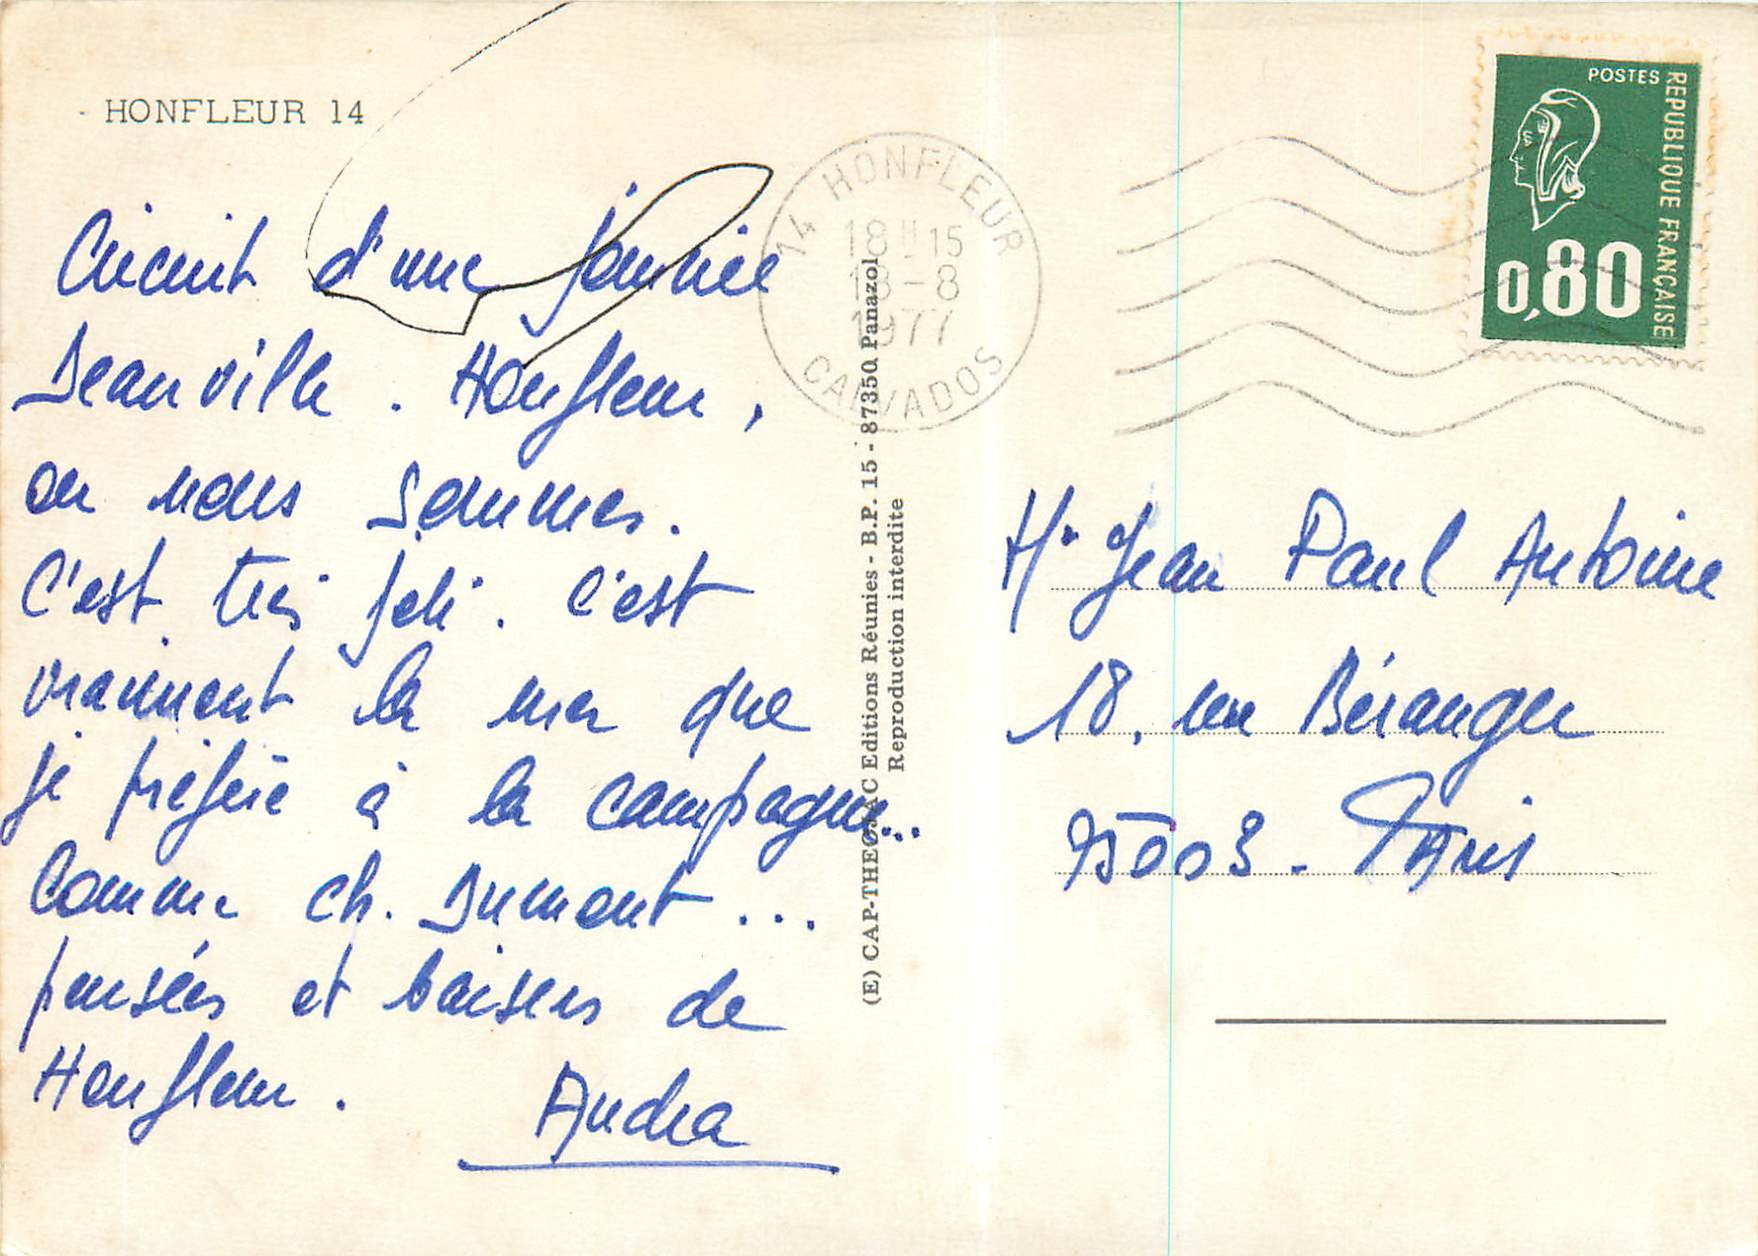 HONFLEUR 14
Circuit d'une journée
Deauville. Honfleur,
où nous sommes.
C'est très joli. C'est
vraiment la mer que
je préfère à la campagne...
Comme ch. Dumont...
pensées et baisers de
Honfleur.
Andrea
(E) CAP-THEOJAC Editions Réunies - B.P. 15 - 87350 Panazol
Reproduction interdite
14 HONFLEUR
18H15
18-8
1977
CALVADOS
POSTES
REPUBLIQUE FRANÇAISE
0,80
Mr Jean Paul Antoine
18, rue Béranger
75003 - PARIS